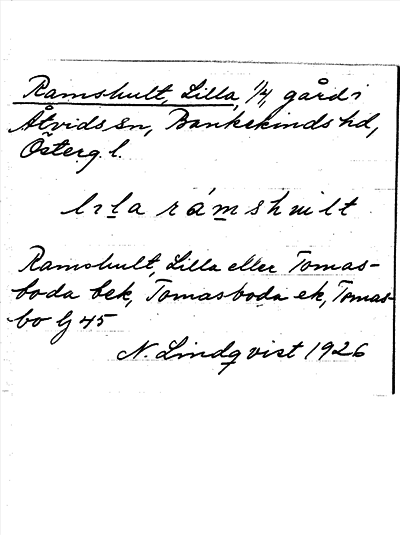 Ramshult, Lilla, 1/4, gård i
Åtvids sn, Bankekinds hd,
Österg. l.
lɩla rámshult
Ramshult, Lilla eller Tomas-
boda bek, Tomasboda ek, Tomas-
bo Lj 45
N. Lindqvist 1926